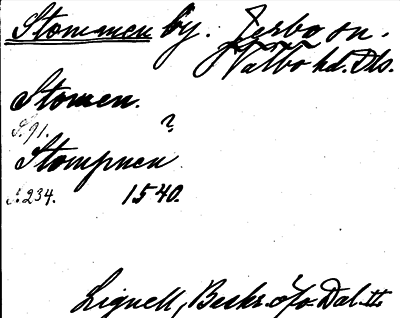 Stommen by. Jerbo sn.
Valbo hd. Dls.
Stomen.
S. 91. ?
Stompnen
S. 234. 1540.
Lignell, Beskr. o/o Dal. II